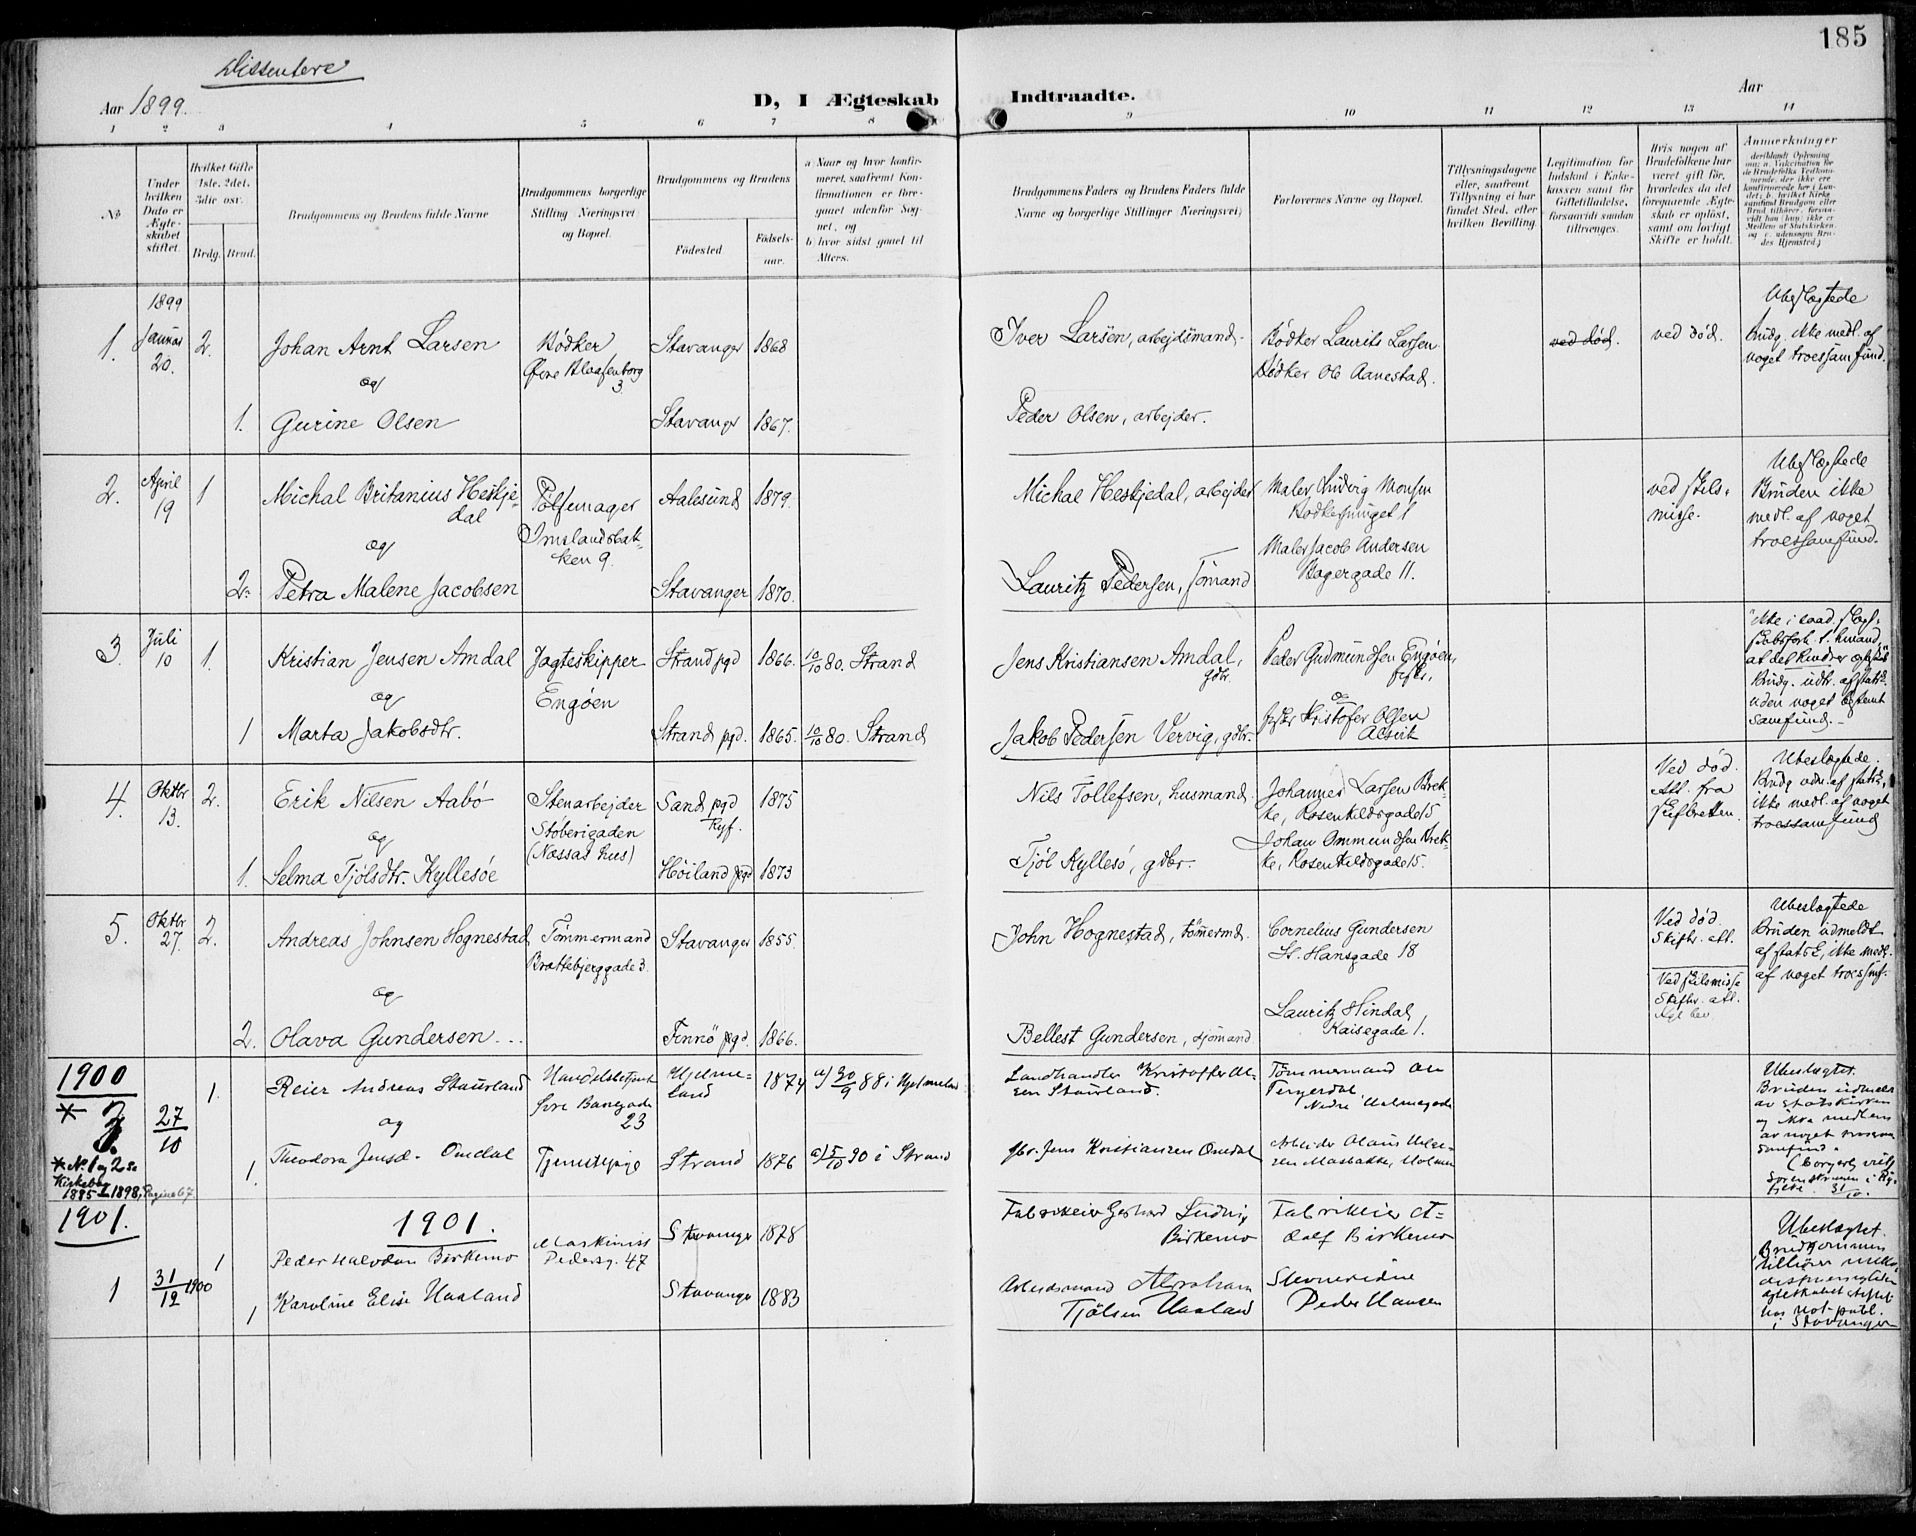 185
Dissentere
Aar 1899.
D, I Ægteskab Indtraadte.
Aar
1 2 3 4 5 6 7 8 9 10 11 12 13 14
No
Under hvilken Dato er Ægteskabet stiftet.
Hvilket Gifte 1ste, 2det, 3die osv.
Brdg. Brud.
Brudgommens og Brudens fulde Navne
Brudgommens borgerlige Stilling Næringsvei og Bopæl.
Brudgommens og Brudens
Fødested
Fødselsaar.
a) Naar og hvor konfirmeret, saafremt Konfirmationen er foregaaet udenfor Sognet, og
b) hvor sidst gaaet til Alters.
Brudgommens Faders og Brudens Faders fulde Navne og borgerlige Stillinger Næringsvei)
Forlovernes Navne og Bopæl.
Tillysningsdagene eller, saafremt Tillysning ei har fundet Sted, efter hvilken Bevilling.
Legitimation for Indskud i Enkekassen samt for Giftetilladelse, forsaavidt saadan tiltrænges.
Hvis nogen af Brudefolkene har været gift før, hvorledes da det foregaaende Ægteskab er opløst, samt om lovligt Skifte er holdt.
Anmerkninger
1. 1899 Januar 20. 2.
Johan Arnt Larsen
Bødker
Øvre
3
Stavanger 1868
og
1. Gurine Olsen
Stavanger 1867.
Iver Larsen, arbejdsmand.
Peder Olsen, arbejder.
Bødker Laurits Larsen
Bødker Ole Aanestad.
ved død.
ved død.
Ubeslægtede
Brudg. ikke medl. af noget troessamfund.
2. April 19 1
Michal Britanius Heskjedal
Pølsemager
Imslandsbakken 9.
Aalesund 1879.
og
2. Petra Malene Jacobsen
Stavanger 1870.
Michal Heskjedal, arbejder
Lauritz Pedersen, sømand
Maler Ludvig Monsen
1
Maler Jacob Andersen
Bagergade 11.
ved skilsmisse.
Ubeslægtede
Bruden ikke medl. af noget troessamfund.
3. Juli 10 1.
Kristian Jensen Amdal
Jagteskipper
Engøen
Strand pgd 1866. 10/10 80. Strand
og
1 Marta Jakobsdtr.
Strand pgd. 1865. 10/10 80. Strand
Jens Kristiansen Amdal, gdbr.
Jakob Pedersen Vervig, gdbr.
Peder Gudmundsen Engøen,
og
Kristofer Olsen
ikke i saad. slægtskabsforh. t. hinand, at det hindrer ægtesk
Brudg. udtr. af statsk. uden noget bestemt samfund.
4. Oktbr 13. 2.
Erik Nilsen Aabø
Stenarbejder
Støberigaden
(Næssas hus)
Sand pgd Ryf. 1875
og
1. Selma Tjølsdtr. Kyllesøe
Høiland pgd 1873
Nils Tollefsen, husmand.
Tjøl Kyllesø, gdbr.
Johannes Larsen Brekke, Rosenkildsgade 15
Johan Ommundsen Brekke, Rosenkildsgade 15.
Ved død.
Att. fra skifteretten.
Ubeslægtede.
Brudg. udtr. af statsk, ikke medl. af noget troessamfund
5. Oktbr 27. 2.
Andreas Johnsen Hognestad
Tømmermand
Brattebjerggade 3.
Stavanger 1855.
og
2. Olava Gundersen
Finnø pgd. 1866.
John Hognestad, tømermd.
Bellest Gundersen, sjømand
Cornelius Gundersen
St. Hansgade 18
Lauritz Hindal
Kaisegade 1.
Ved død.
Skiftr. att.
Ved skilsmisse
Skiftr. att.
Ubeslægtede
Bruden udmeldt af statsk, ikke medl. af noget troessmf.
1900
* 3.
* No. 1 og 2 se Kirkebog 1885-1898, Pagina 67
27/10 1.
Reier Andreas Staurland
Handelsbetjent
Øvre Banegade 23
Hjelmeland 1874 a) 30/9 88 i Hjelmeland
og
1. Theodora Jensd. Omdal
Tjenestepige
Strand 1876 a) 5/10 90 i Strand
Landhandler Kristoffer Olsen Staurland.
Gbr. Jens Kristiansen Omdal
Tømmermand
Nedre Holmegade
Arbeider Olaus
Ubeslægtet.
Bruden udmeldt av statskirken og ikke medlem av noget troessamfund.
1901.
1901.
1 31/12 1900 1
Peder Halvdan Birkemo
Maskinist
Pedersg. 47
Stavanger 1878
1 Karoline Elise Haaland
Stavanger 1883
Fabrikeier Gerhard Ludvig Birkemo
Arbeidsmand Abraham Tjølsen Haaland
Fabrikeier Adolf Birkemo
Peder Hansen
Ubeslægtet.
Brudgommen tilhører
hos not. publ. i Stavanger